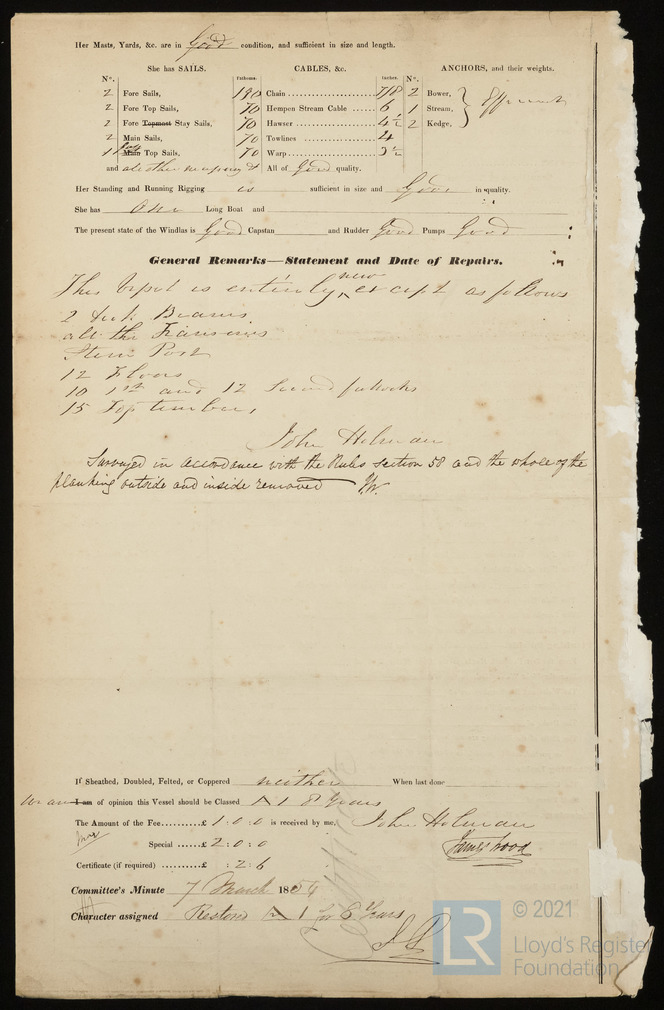 Her Masts, Yards, &c. are in Good condition, and sufficient in size and length.
She has SAILS. CABLES, &c. ANCHORS, and their weights.
No. Fathoms. Inches. No.
2 Fore Sails, 190 Chain 7/8 2 Bower,
2 Fore Top Sails, 70 Hempen Stream Cable 6 1 Stream,
2 Fore Topmast Stay Sails, 70 Hawser 4½ 2 Kedge,
2 Main Sails, 70 Towlines 4
1 Main Top Sails, 70 Warp 3½
and all other necessary & All of Good quality.
Her Standing and Running Rigging is sufficient in size and Good in quality.
She has One Long Boat and
The present state of the Windlas is Good Capstan and Rudder Good Pumps Good
General Remarks—Statement and Date of Repairs.
new
This Vessel is entirely ^ except as follows
2 deck Beams
all the Transoms
Stern Post
12 Floors
10 1st and 12 Second futtocks
15 Top timbers,
John Holman
Surveyed in accordance with the Rules section 58 and the whole of the
planking outside and inside removed JW.
If Sheathed, Doubled, Felted, or Coppered neither When last done
We are I am of opinion this Vessel should be Classed A 1 8 Years
The Amount of the Fee..........£ 1:0:0 is received by me, John Holman
Special ......£ 2:0:0 James Wood
Certificate (if required) ..........£ :2:6
Committee's Minute 7 March 1854
Character assigned Restored A 1 for 6 Years
© 2021
LR
Lloyd's Register
Foundation